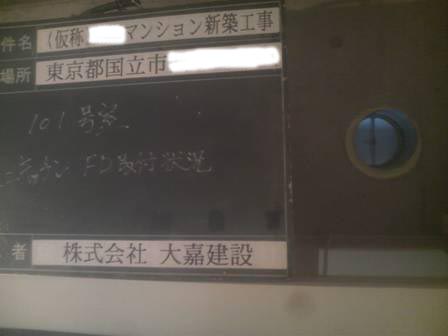 件名 (仮称) マンション新築工事
場所 東京都国立市
101号室
FD取付状況
者 株式会社 大嘉建設